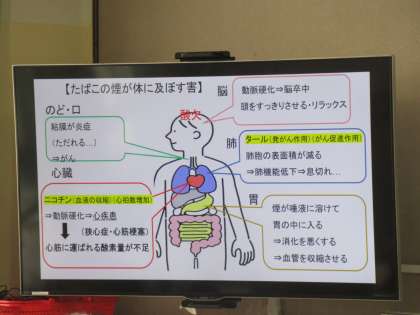 【たばこの煙が体に及ぼす害】
のど・口
粘膜が炎症
(ただれる…)
⇒がん
脳
動脈硬化⇒脳卒中
頭をすっきりさせる・リラックス
酸欠
肺
タール(発がん作用)(がん促進作用)
肺胞の表面積が減る
⇒肺機能低下⇒息切れ…
心臓
ニコチン(血液の収縮)(心拍数増加)
⇒動脈硬化⇒心疾患
(狭心症・心筋梗塞)
心筋に運ばれる酸素量が不足
胃
煙が唾液に溶けて
胃の中に入る
⇒消化を悪くする
⇒血管を収縮させる